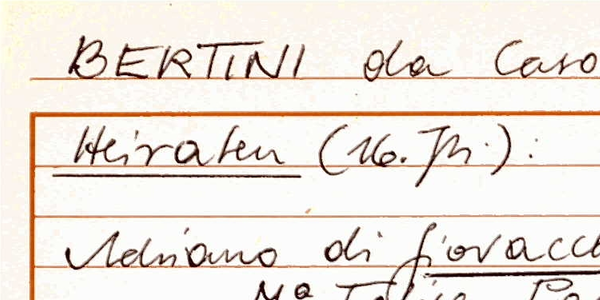 BERTINI da Caso
Heiraten (16. Jh.):
Adriano di Giovacc
Mª